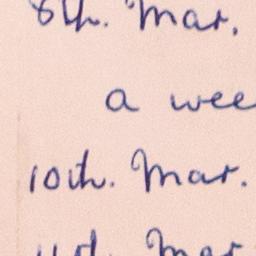 8th. Mar.
a wee
10th. Mar.
11th. Mar